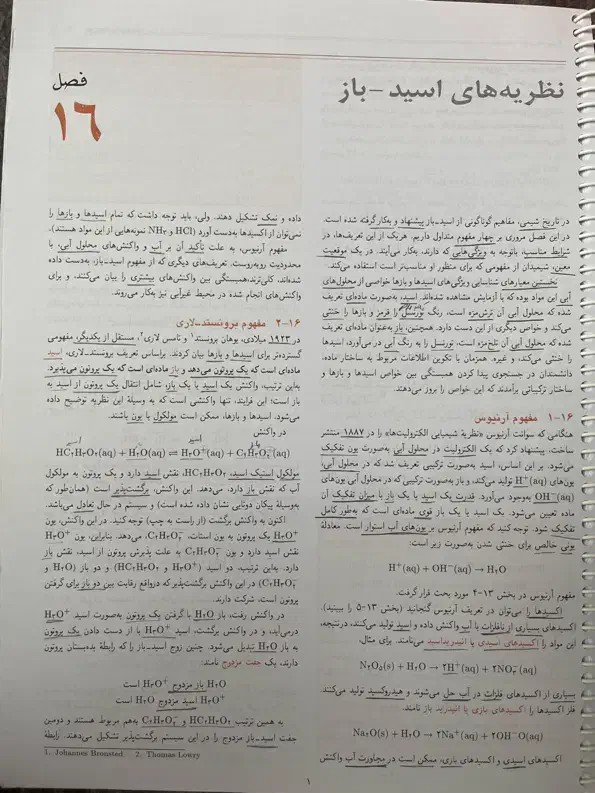 فصل
۱۶
نظریه‌های اسید-باز
در تاریخ شیمی، مفاهیم گوناگونی از اسید-باز پیشنهاد و به‌کار گرفته شده است.
در این فصل مروری بر چهار مفهوم متداول داریم. هریک از این تعریف‌ها، در
شرایط مناسب، باتوجه به ویژگی‌هایی که دارند، به‌کار می‌آیند. در یک موقعیت
معین، شیمیدان از مفهومی که برای منظور او مناسب‌تر است استفاده می‌کند.
نخستین معیارهای شناسایی ویژگی‌های اسیدها و بازها خواصی از محلول‌های
آبی این مواد بوده که با آزمایش مشاهده شده‌اند. اسید، به‌صورت ماده‌ای تعریف
شده که محلول آبی آن ترش‌مزه است، رنگ تورنسل را قرمز و بازها را خنثی
می‌کند و خواص دیگری از این دست دارد. همچنین، باز به‌عنوان ماده‌ای تعریف
شده که محلول آبی آن تلخ‌مزه است، تورنسل را به رنگ آبی در می‌آورد، اسیدها
را خنثی می‌کند، و غیره. همزمان با تکوین اطلاعات مربوط به ساختار ماده،
دانشمندان در جستجوی پیدا کردن همبستگی بین خواص اسیدها و بازها و
ساختار ترکیباتی برآمدند که این خواص را بروز می‌دهند.
۱۶-۱ مفهوم آرنیوس
هنگامی که سوانت آرنیوس «نظریهٔ شیمیایی الکترولیت‌ها» را در ۱۸۸۷ منتشر
ساخت، پیشنهاد کرد که یک الکترولیت در محلول آبی به‌صورت یون تفکیک
می‌شود. بر این اساس، اسید به‌صورت ترکیبی تعریف شد که در محلول آبی،
یون‌های H⁺(aq) تولید می‌کند، و باز به‌صورت ترکیبی که در محلول آبی یون‌های
OH⁻(aq) به‌وجود می‌آورد. قدرت یک اسید یا یک باز با میزان تفکیک آن
ماده تعیین می‌شود. یک اسید یا یک باز قوی ماده‌ای است که به‌طور کامل
تفکیک شود. توجه کنید که مفهوم آرنیوس بر یون‌های آب استوار است. معادلهٔ
یونی خالص برای خنثی شدن به‌صورت زیر است:
H⁺(aq) + OH⁻(aq) → H۲O
مفهوم آرنیوس در بخش ۱۳-۴ مورد بحث قرار گرفت.
اکسیدها را می‌توان در تعریف آرنیوس گنجانید (بخش ۱۳-۵ را ببینید).
اکسیدهای بسیاری از نافلزات با آب واکنش داده و اسید تولید می‌کنند، درنتیجه،
این مواد را اکسیدهای اسیدی یا انیدریداسید می‌نامند. برای مثال،
N۲O۵(s) + H۲O → ۲H⁺(aq) + ۲NO۳⁻(aq)
بسیاری از اکسیدهای فلزات در آب حل می‌شوند و هیدروکسید تولید می‌کنند
فلز اکسیدها را اکسیدهای بازی یا انیدرید باز نامند.
Na۲O(s) + H۲O → ۲Na⁺(aq) + ۲OH⁻O(aq)
اکسیدهای اسیدی و اکسیدهای بازی، ممکن است در مجاورت آب واکنش
داده و نمک تشکیل دهند. ولی، باید توجه داشت که تمام اسیدها و بازها را
نمی‌توان از اکسیدها به‌دست آورد (HCl و NH۳ نمونه‌هایی از این مواد هستند).
مفهوم آرنیوس، به علت تأکید آن بر آب و واکنش‌های محلول آبی، با
محدودیت روبه‌روست. تعریف‌های دیگری که از مفهوم اسید-باز، به‌دست داده
شده‌اند، کلی‌ترند، همبستگی بین واکنش‌های بیشتری را بیان می‌کنند، و برای
واکنش‌های انجام شده در محیط غیرآبی نیز به‌کار می‌روند.
۱۶-۲ مفهوم برونستد-لاری
در ۱۹۲۳ میلادی، یوهان برونستد۱ و تامس لاری۲، مستقل از یکدیگر، مفهومی
گسترده‌تر برای اسیدها و بازها بیان کردند. براساس تعریف برونستد-لاری، اسید
ماده‌ای است که یک پروتون می‌دهد و باز ماده‌ای است که یک پروتون می‌پذیرد.
به‌این ترتیب، واکنش یک اسید با یک باز، شامل انتقال یک پروتون از اسید به
باز است؛ این فرایند، تنها واکنشی است که به وسیلهٔ این نظریه توضیح داده
می‌شود. اسیدها و بازها، ممکن است مولکول یا یون باشند.
در واکنش
اسید باز اسید باز
HC۲H۳O۲(aq) + H۲O(aq) ⇌ H۳O⁺(aq) + C۲H۳O۲⁻(aq)
مولکول استیک اسید، HC۲H۳O۲، نقش اسید دارد و یک پروتون به مولکول
آب که نقش باز دارد، می‌دهد. این واکنش، برگشت‌پذیر است (همان‌طور که
به‌وسیلهٔ پیکان دوتایی نشان داده شده است) و سیستم در حال تعادل می‌باشد.
اکنون به واکنش برگشت (از راست به چپ) توجه کنید. در این واکنش، یون
H۳O⁺ یک پروتون به یون استات، C۲H۳O۲⁻، می‌دهد. بنابراین، یون H۳O⁺
نقش اسید دارد و یون C۲H۳O۲⁻ به علت پذیرش پروتون از اسید، نقش باز
دارد. به‌این ترتیب، دو اسید (H۳O⁺ و HC۲H۳O۲) و دو باز (H۲O و
C۲H۳O۲⁻) در این واکنش برگشت‌پذیر که درواقع رقابت بین دو باز برای گرفتن
پروتون است، شرکت دارند.
در واکنش رفت، باز H۲O با گرفتن یک پروتون به‌صورت اسید H۳O⁺
درمی‌آید، و در واکنش برگشت، اسید H۳O⁺ با از دست دادن یک پروتون
به باز H۲O تبدیل می‌شود. چنین زوج اسید-باز را که رابطهٔ بده‌بستان پروتون
دارند، یک جفت مزدوج نامند:
H۲O باز مزدوج H۳O⁺ است
H۳O⁺ اسید مزدوج H۲O است
به همین ترتیب HC۲H۳O۲ و C۲H۳O۲⁻ به‌هم مربوط هستند و دومین
جفت اسید-باز مزدوج را در این سیستم برگشت‌پذیر تشکیل می‌دهند. رابطهٔ
1. Johannes Bronsted 2. Thomas Lowry
۱